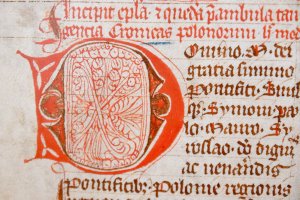 Incipit epla ⁊ quedã pambula tan
gencia Cronicas polonorum
Domino .M. dei
gratia summo
Pontifici Simul
qꝫ Symoni pau
lo Mauro Sy
do digni
ac uenandis
Pontificibꝫ Polonie regionis